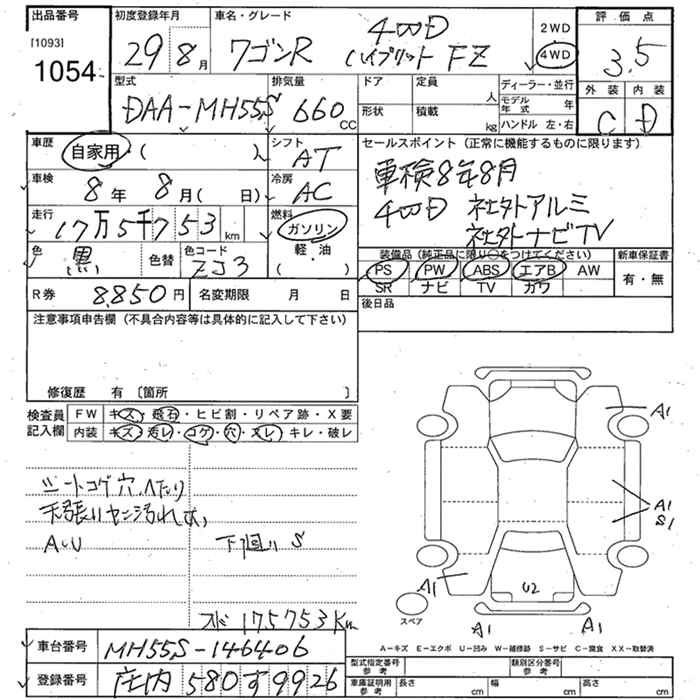 出品番号 初度登録年月 車名・グレード 評価点
[1093] 1054 29年 8月 ワゴンR 4WD ハイブリッド FZ 2WD 4WD 3.5
型式 排気量 ドア 定員 人 ディーラー・並行 外装 内装
DAA-MH55S 660CC 形状 積載 kg モデル年式 年 C D
ハンドル 左・右
車歴 自家用・( ) シフト AT セールスポイント(正常に機能するものに限ります)
車検 8年 8月( 日) 冷房 AC 車検8年8月
走行 17万5千753km 燃料 ガソリン 軽・油 ( ) 4WD 社外アルミ
社外ナビTV
色 黒 色替 色コード ZJ3 装備品(純正品に限り○をつけてください) 新車保証書
PS PW ABS エアB AW 有・無
SR ナビ TV カワ
R券 8,850円 名変期限 月 日 後日品
注意事項申告欄(不具合内容等は具体的に記入して下さい)
修復歴 有 [箇所 ]
検査員記入欄 FW キズ・飛石・ヒビ割・リペア跡・X要
内装 キズ・汚レ・コゲ・穴・スレ・キレ・破レ
シートコゲ穴、ヘたり
天張りヤニ汚れ
AU 下廻りS
175753Km
A1
A1
S1
A1
U2
スペア
A1 A1
A-キズ E-エクボ U-凹み W-補修跡 S-サビ C-腐食 XX-取替済
車台番号 MH55S-146406 型式指定番号 参考 類別区分番号 参考
登録番号 庄内 580す9926 車庫証明用 参考 長さ cm 幅 cm 高さ cm